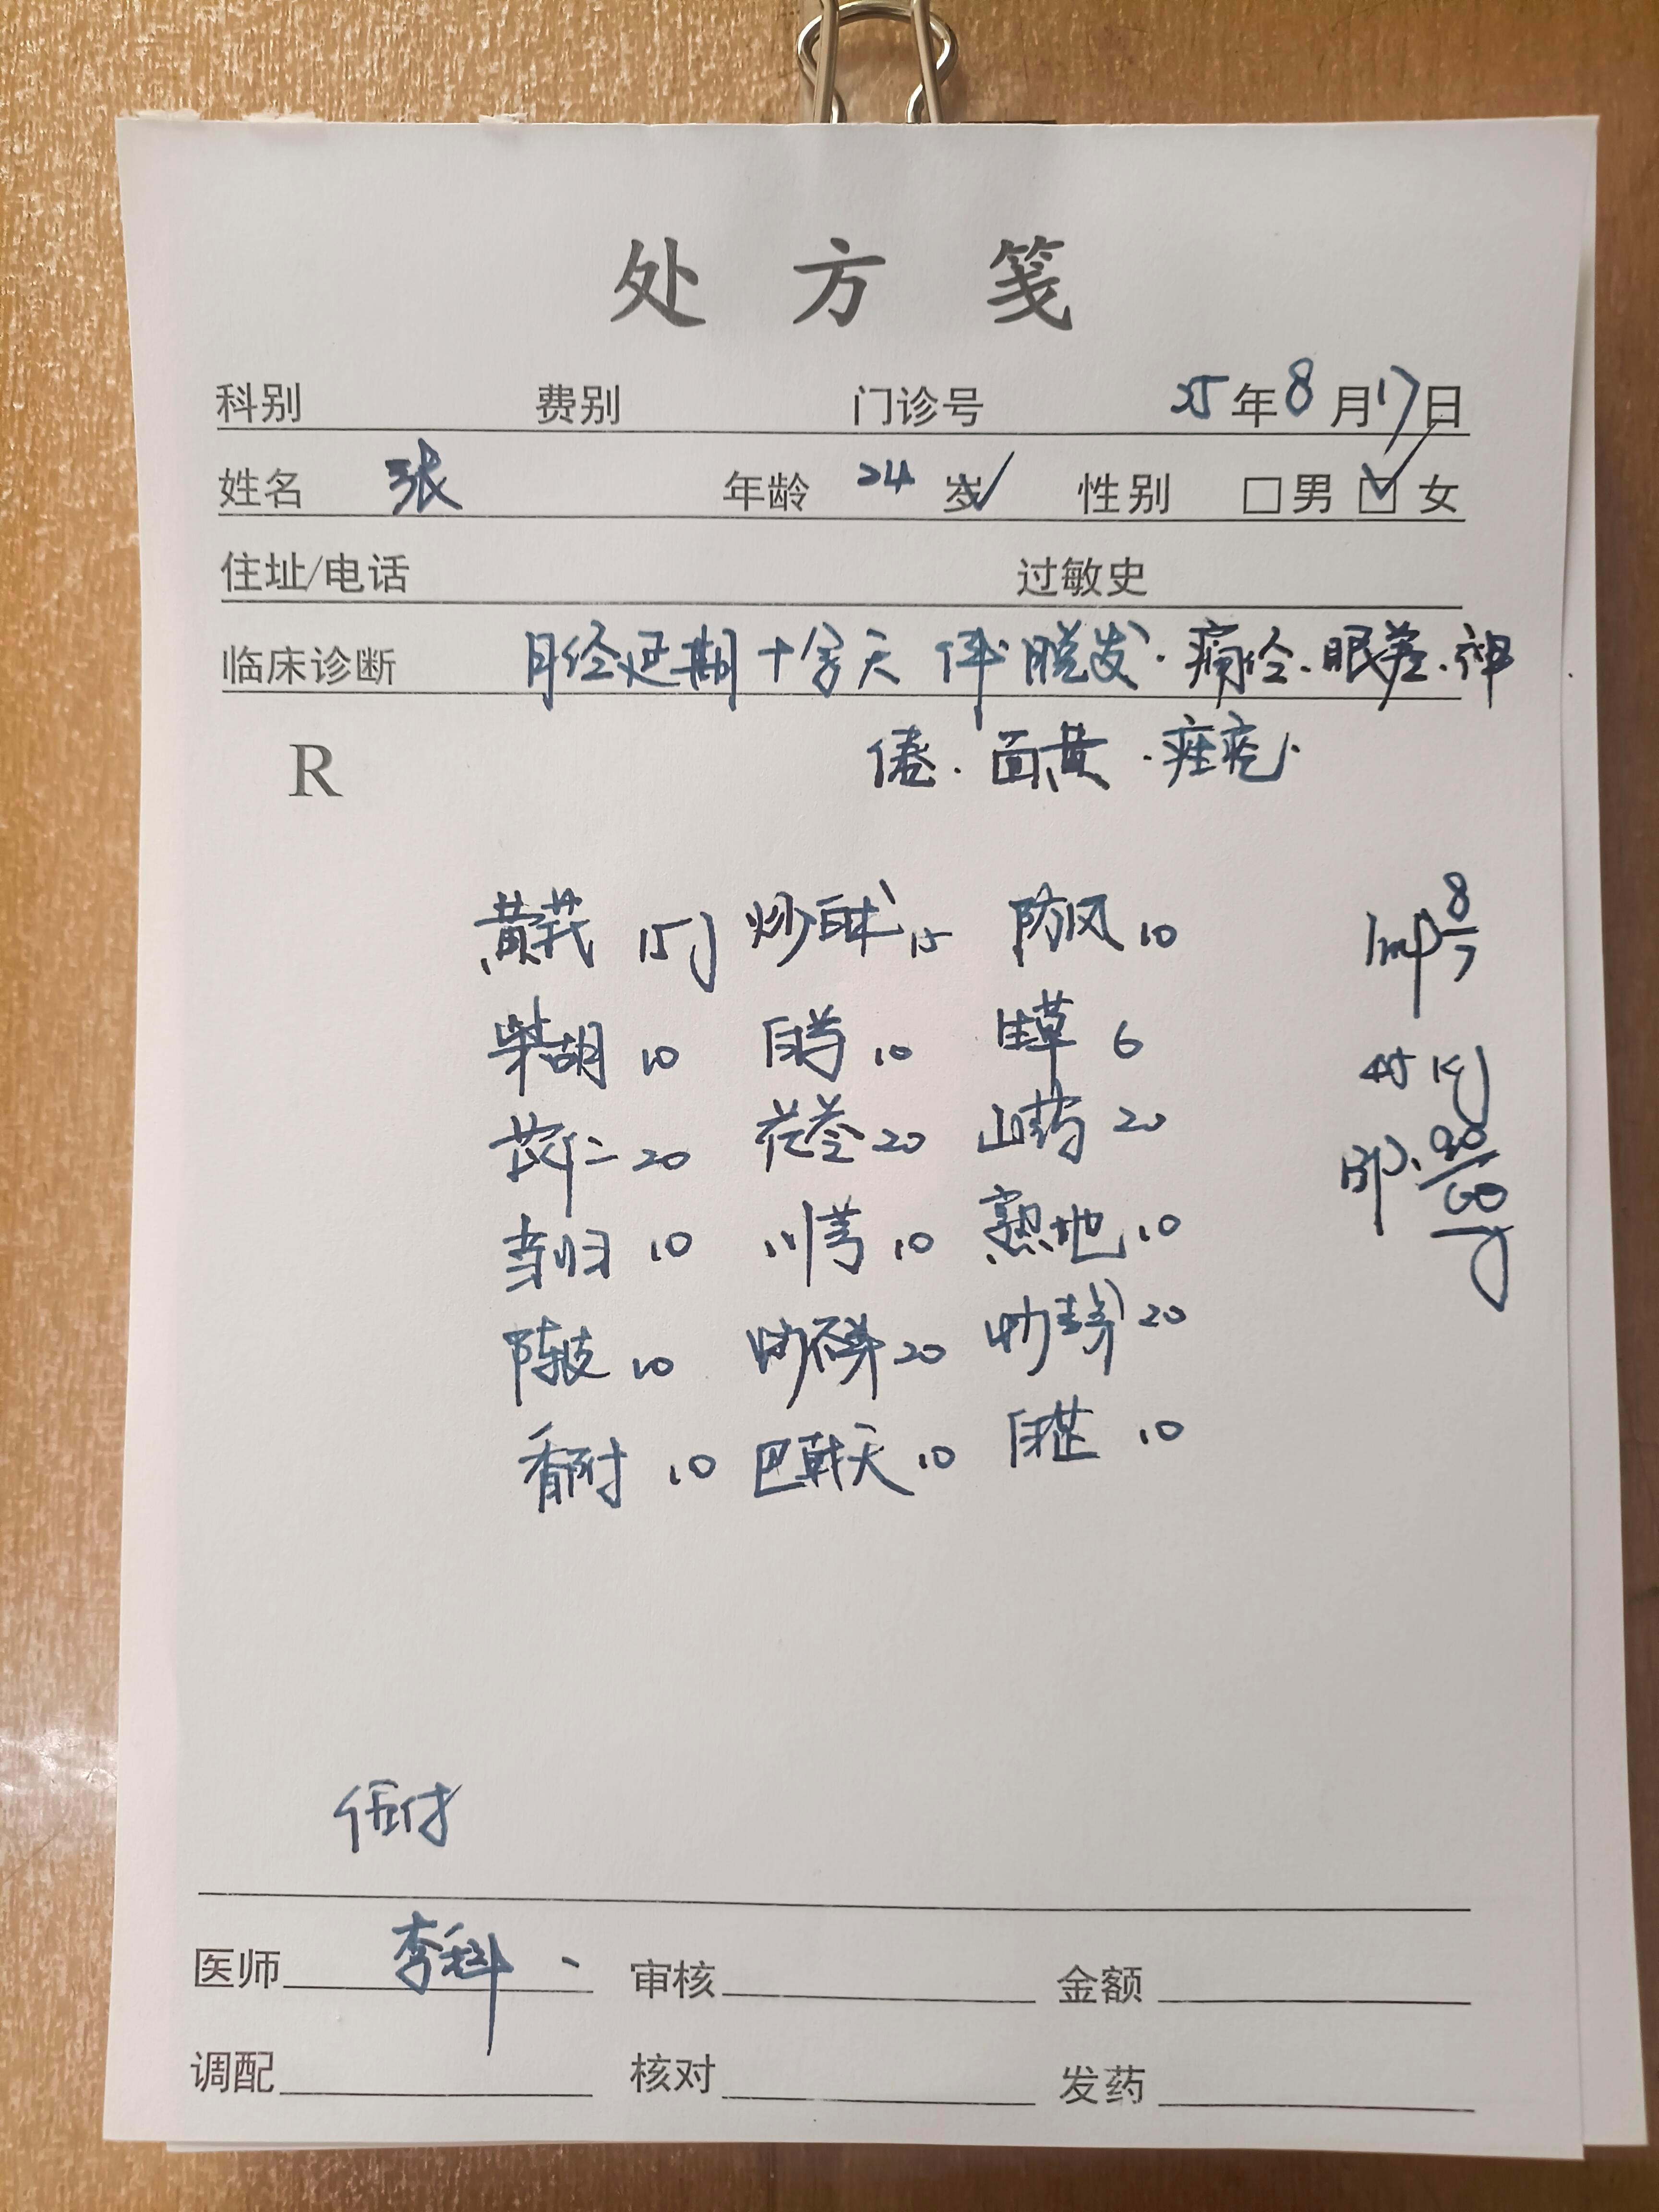 处方笺
科别 费别 门诊号 25年8月17日
姓名 张 年龄 24岁 性别 □男 ☑女
住址/电话 过敏史
临床诊断 月经延期十余天 伴脱发.痛经.眠差.神
倦.面黄.痤疮.
R
黄芪 15g 炒白术 15 防风 10
柴胡 10 白芍 10 甘草 6
苡仁 20 茯苓 20 山药 20
当归 10 川芎 10 熟地 10
陈皮 10 炒谷芽 20 炒麦芽 20
香附 10 巴戟天 10 白芷 10
lmp 8/7
45kg
BP. 90/60
伍付
医师 李科 审核 金额
调配 核对 发药